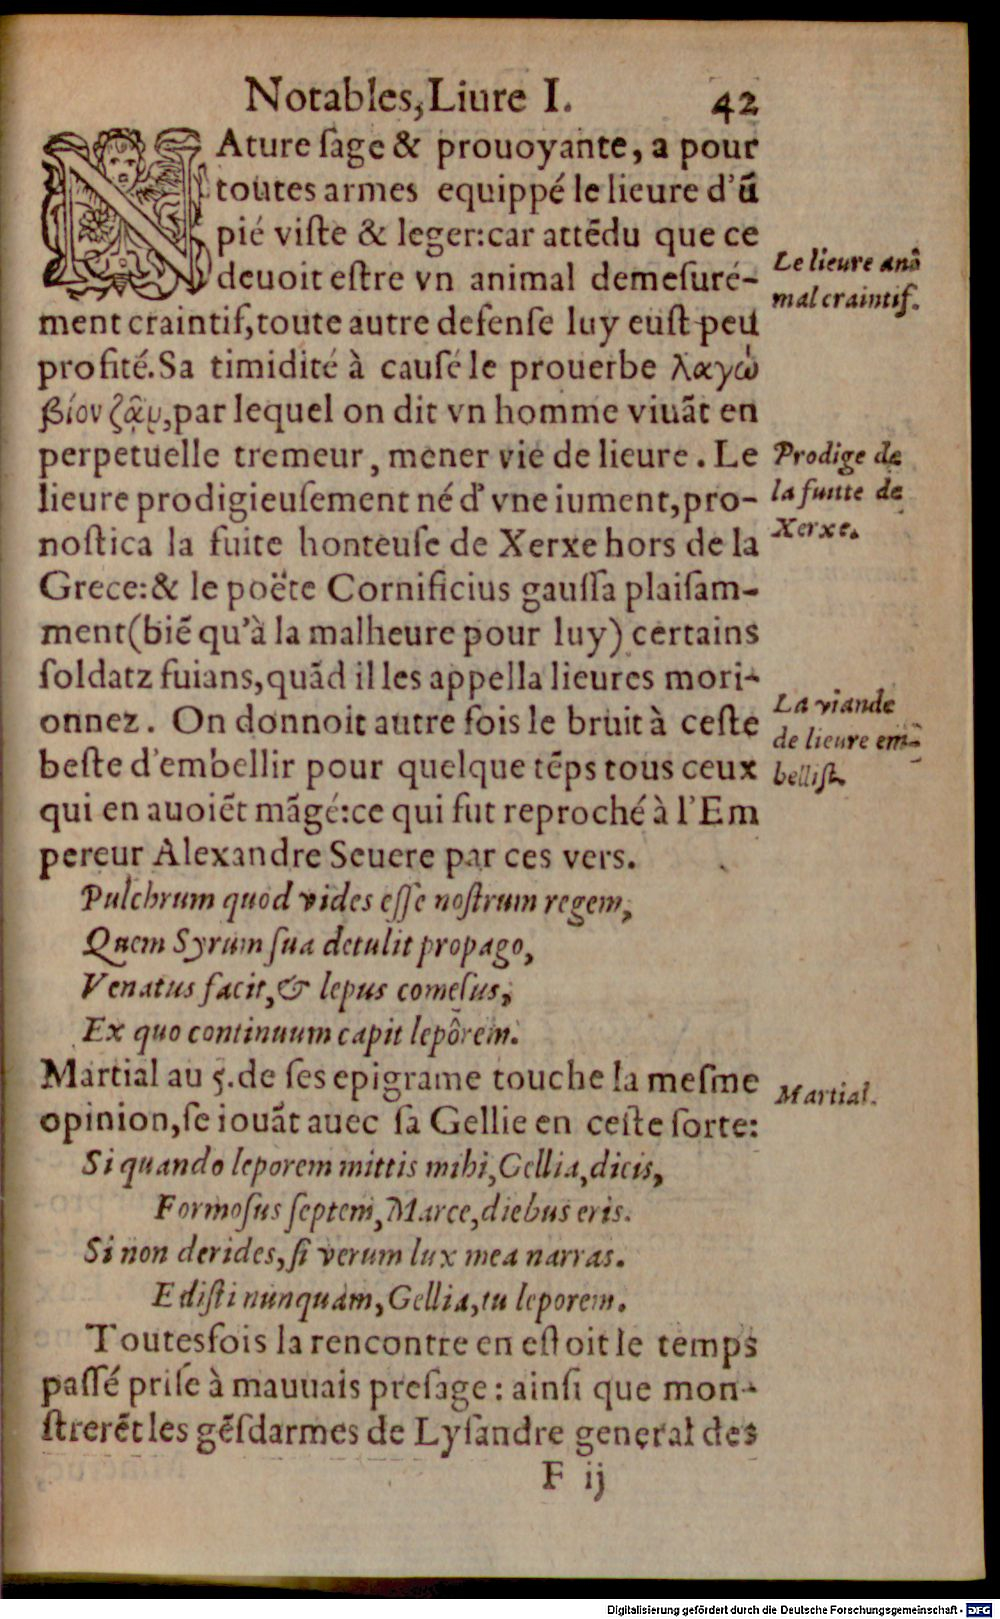 Notables, Liure I. 42
NAture ſage & prouoyante, a pour
toutes armes equippé le lieure d'ũ
pié viſte & leger: car attēdu que ce
deuoit eſtre vn animal demeſuré-
ment craintif, toute autre defenſe luy euſt peu
profité. Sa timidité à cauſé le prouerbe λαγὼ
βίον ζᾷν, par lequel on dit vn homme viuãt en
perpetuelle tremeur, mener vie de lieure. Le
lieure prodigieuſement né d'vne iument, pro-
noſtica la fuite honteuſe de Xerxe hors de la
Grece: & le poëte Cornificius gauſſa plaiſam-
ment (biē qu'à la malheure pour luy) certains
ſoldatz fuians, quãd il les appella lieures mori-
onnez. On donnoit autre fois le bruit à ceſte
beſte d'embellir pour quelque tēps tous ceux
qui en auoiēt mãgé: ce qui fut reproché à l'Em
pereur Alexandre Seuere par ces vers.
Pulchrum quod vides eſſe noſtrum regem,
Quem Syrum ſua detulit propago,
Venatus facit, & lepus comeſus,
Ex quo continuum capit lepôrem.
Martial au 5. de ſes epigrame touche la meſme
opinion, ſe iouãt auec ſa Gellie en ceſte ſorte:
Si quando leporem mittis mihi, Gellia, dicis,
Formoſus ſeptem, Marce, diebus eris.
Si non derides, ſi verum lux mea narras.
Ediſti nunquam, Gellia, tu leporem.
Toutesfois la rencontre en eſtoit le temps
paſſé priſe à mauuais preſage: ainſi que mon-
ſtrerēt les gēſdarmes de Lyſandre general des
F ij
Le lieure ani
mal craintif.
Prodige de
la fuitte de
Xerxe.
La viande
de lieure em-
belliſt.
Martial.
Digitalisierung gefördert durch die Deutsche Forschungsgemeinschaft - DFG